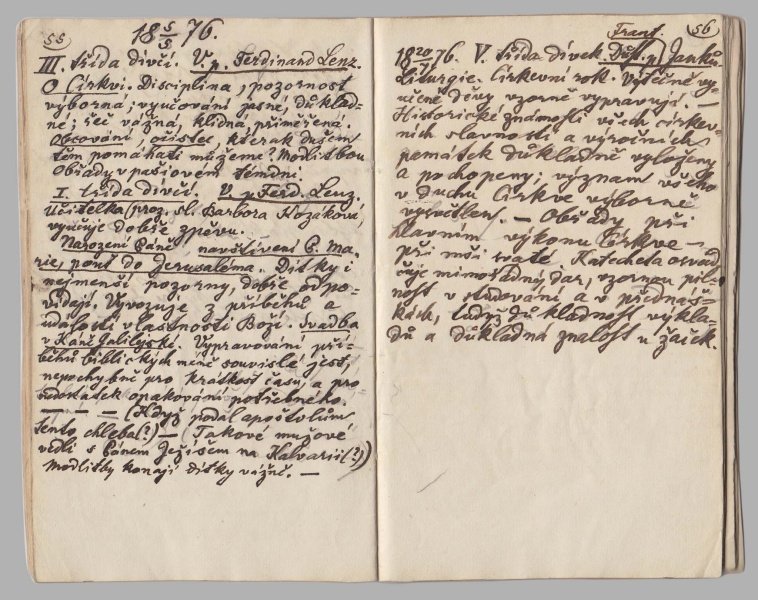 55
18 5/5 76.
III. třída dívčí. V. p. Ferdinand Lenz.
O Církvi. Disciplina, pozornost
výborná; vyučování jasné, důklad-
né; řeč vážná, klidná, přiměřená.
Obcování, očistec, kterak dušem
těm pomáhati můžeme? Modlitbou
Obřady v pašiovém témdni.
I. třída dívčí. V. p. Ferd. Lenz.
Učitelka (proz. sl. Barbora Kozáková,
vyučuje dobře zpěvu.
Narození Páně, navštívení P. Ma-
rie, pouť do Jerusaléma. Dítky i
nejmenší pozorny, dobře odpo-
vídají. Vyvozuje z příběhů a
událostí vlastnosti Boží. Svadba
v Káni Galilejské. Vypravování pří-
běhů biblických méně souvislé jest,
nepochybně pro krátkost času, a pro
nedostatek opakování potřebného.
— — — (Když podal apoštolům
tento chleba(?) — (Takové mužové
vedli s Pánem Ježíšem na Kalvarii(?))
Modlitby konají dítky vážně. —
56
Frant.
18 20/5 76. V. třída dívek. Důst. p. Janků.
Liturgie. Církevní rok. Výtečně vy-
učené děvy vzorně vypravují. —
Historické známosti všech církev-
ních slavností a výročních
památek důkladně vyloženy
a pochopeny; význam všeho
v duchu Církve výborně
vysvětlen. — Obřady při
hlavním výkonu Církve —
při mši svaté. Katecheta osvěd-
čuje mimořádný dar, vzornou pil-
nost v studování a v přednáš-
kách, tudyž důkladnost výkla-
dů a důkladná znalost u žaček.